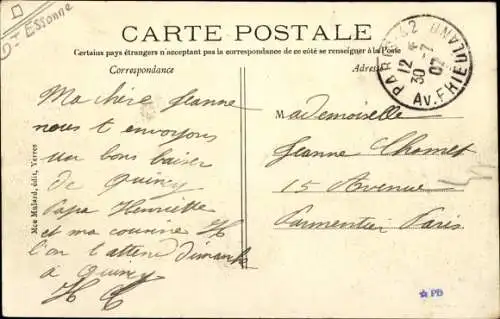 Dt Essonne
CARTE POSTALE
Certains pays étrangers n'acceptant pas la correspondance de ce côté se renseigner à la Poste
Correspondance
Adresse
PARIS 42
12
30 -7
07
AV. FRIEDLAND
Ma chère Jeanne
nous t envoyons
un bons baiser
de Quincy
Papa Henriette
et ma cousine H
l'on t attend dimanche
a Quincy
H C
Mademoiselle
Jeanne Chomet
15 Avenue
Parmentier Paris.
Mce Mulard, édit, Yerres
PD